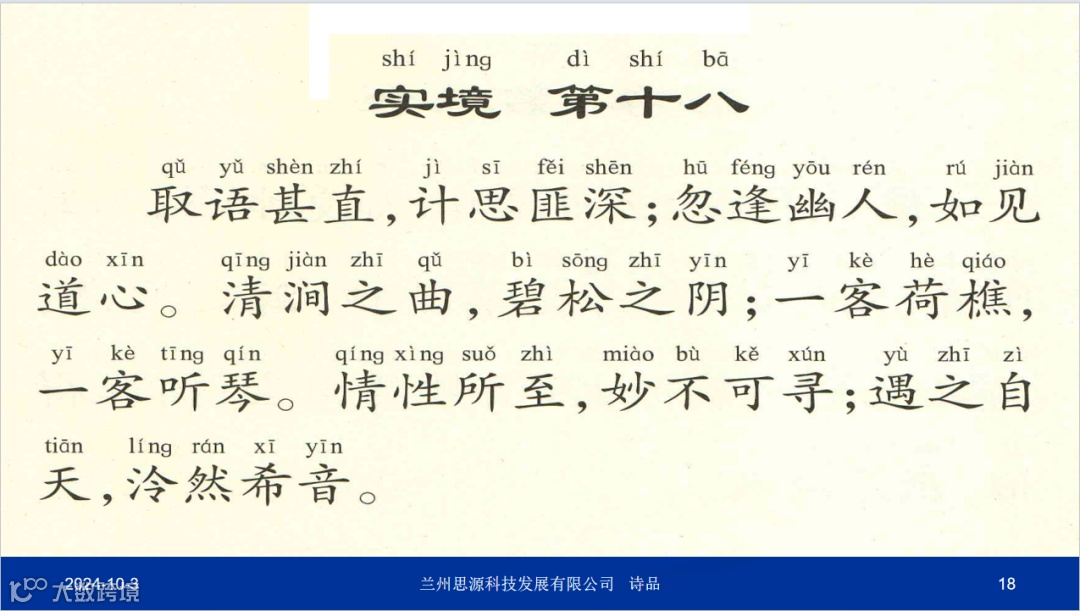 shí jìng dì shí bā
实境 第十八
qǔ yǔ shèn zhí jì sī fěi shēn hū féng yōu rén rú jiàn
取语甚直,计思匪深;忽逢幽人,如见
dào xīn qīng jiàn zhī qǔ bì sōng zhī yīn yī kè hè qiáo
道心。清涧之曲,碧松之阴;一客荷樵,
yī kè tīng qín qíng xìng suǒ zhì miào bù kě xún yù zhī zì
一客听琴。情性所至,妙不可寻;遇之自
tiān líng rán xī yīn
天,泠然希音。
2024-10-3 兰州思源科技发展有限公司 诗品 18
大数跨境